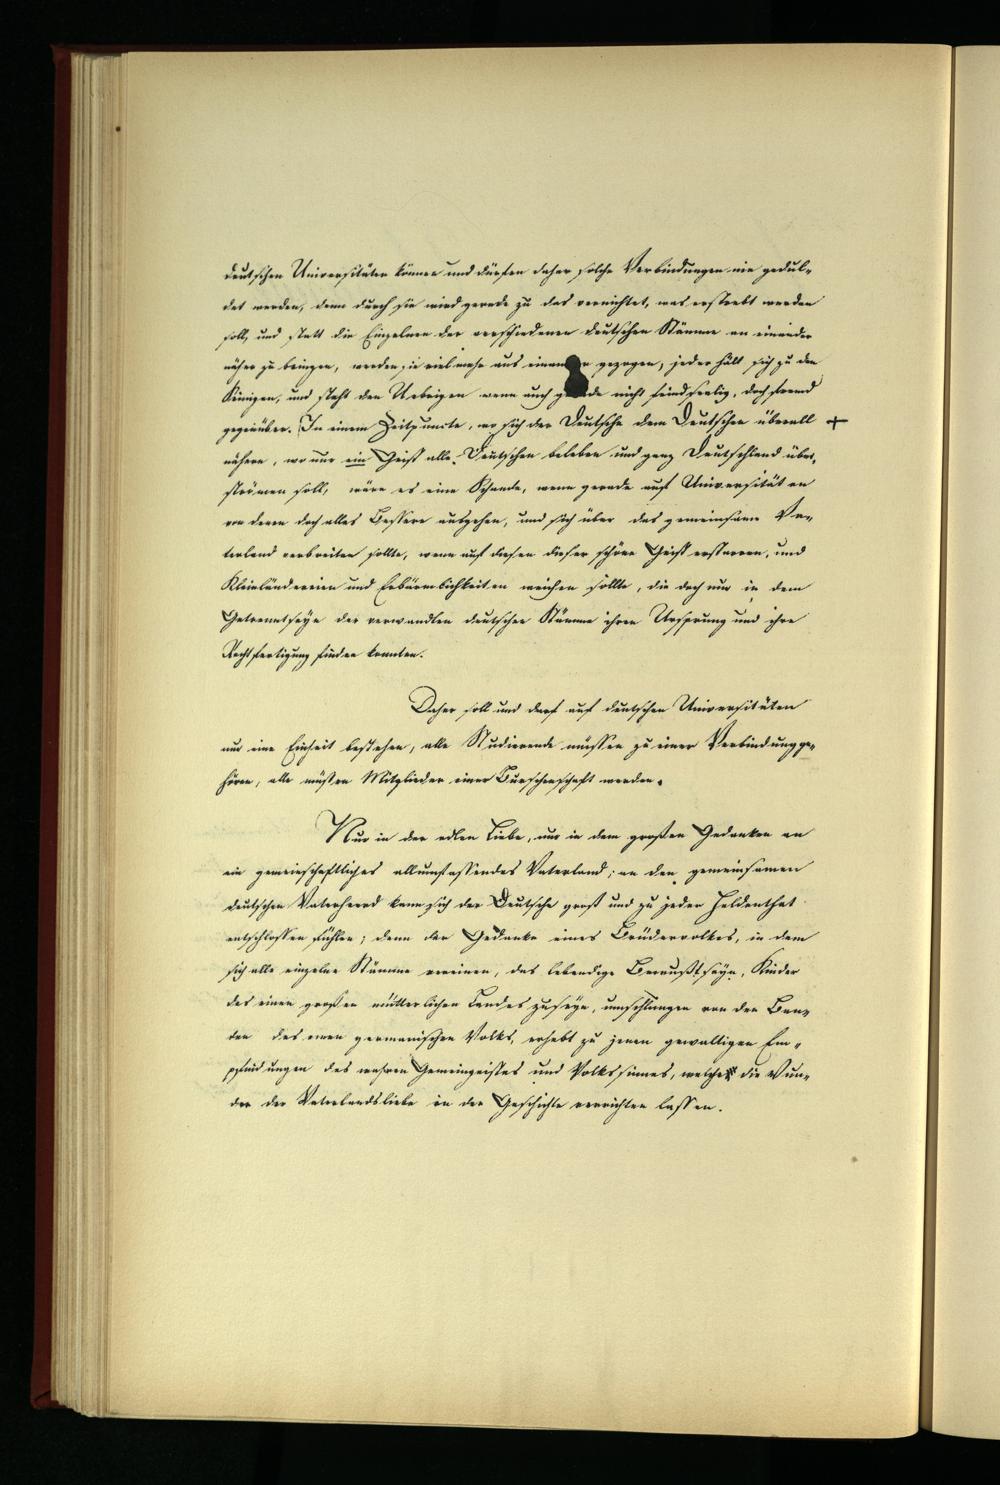 deutschen Universitäten können und dürfen daher solche Verbindungen nie gedul-
det werden, denn durch sie wird gerade zu das vernichtet, was erstrebt werden
soll, und statt die Einzelnen der verschiedenen deutschen Stämme an einander
näher zu bringen, werden sie vielmehr aus einander gezogen, jeder hält sich zu den
Seinigen, und steht den Uebrigen wenn auch gerade nicht feindseelig, doch fremd
gegenüber. In einem Zeitpuncte, wo sich der Deutsche dem Deutschen überall +
nähern, wo nur ein Geist alle Deutschen beleben und ganz Deutschland über-
strömen soll, wäre es eine Schande, wenn gerade auf Universitäten
von denen doch alles Bessere ausgehen, und sich über das gemeinsame Va-
terland verbreiten sollte, wenn auf diesen dieser schöne Geist erstarren, und
Kleinländereien und Erbärmlichkeiten weichen sollte, die doch nur in dem
Getrenntseyn der verwandten deutschen Stämme ihren Ursprung und ihre
Rechtfertigung finden konnten.
Daher soll und darf auf deutschen Universitäten
nur eine Einheit bestehen, alle Studierende müssen zu einer Verbindung ge-
hören, alle müssen Mitglieder einer Burschenschaft werden.
Nur in der edlen Liebe, nur in dem großen Gedanken an
ein gemeinschaftliches allumfassendes Vaterland; an den gemeinsamen
deutschen Vaterheerd kann sich der Deutsche groß und zu jeder Heldenthat
entschlossen fühlen; denn der Gedanke eines Brüdervolkes, in dem
sich alle einzelne Stämme vereinen, das lebendige Bewußtseyn, Kinder
des einen großen mütterlichen Landes zu seyn, umschlungen von den Ban-
den des einen germanischen Volks, erhebt zu jenen gewaltigen Em-
pfindungen des wahren Gemeingeistes und Volkssinnes, welche die Wun-
der der Vaterlandsliebe in der Geschichte verrichten lassen.